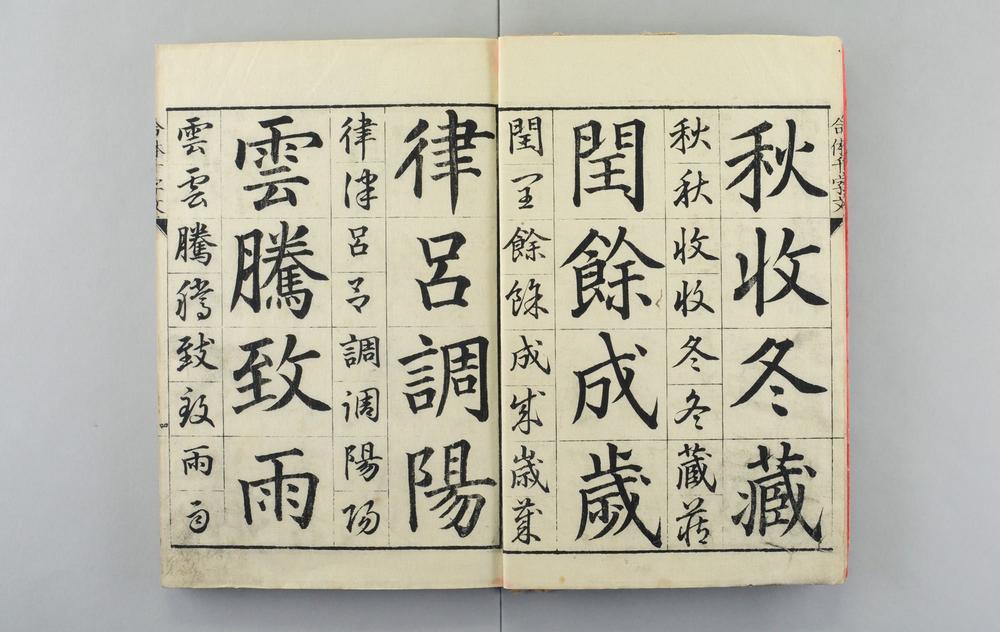 秋收冬藏
秋秋收收冬冬藏藏
閏餘成歲
閏閏餘餘成成歲歲
律呂調陽
律律呂呂調調陽陽
雲騰致雨
雲雲騰騰致致雨雨